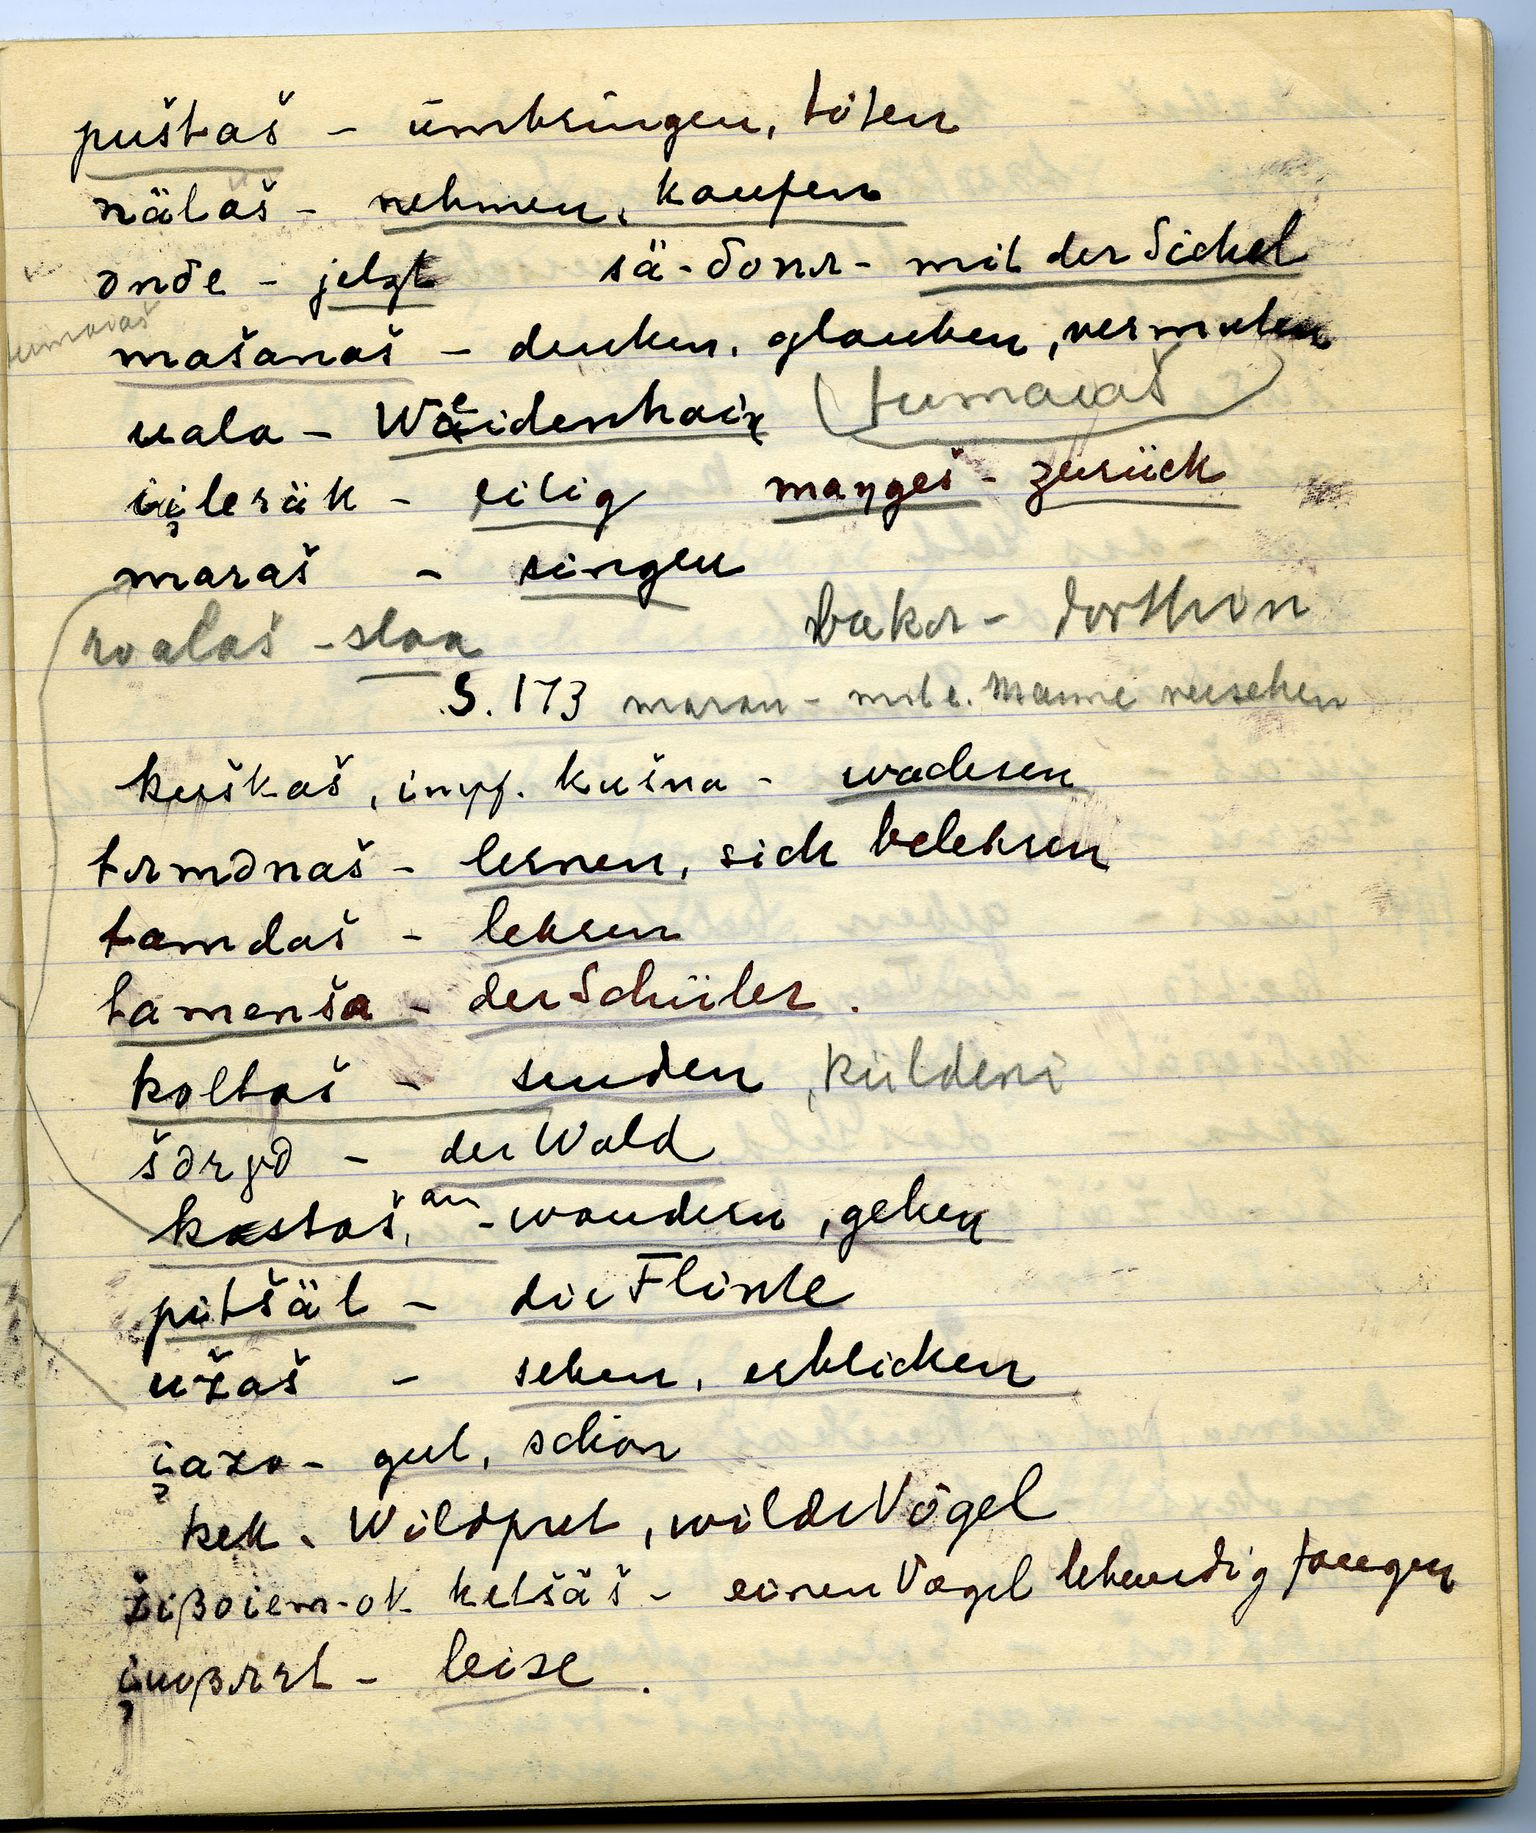 puštaš – umbringen, töten
nälaš – nehmen, kaufen
ənδe – jetzt sä-δonɤ – mit der Sichel
tumaiaš
mašanaš – denken, glauben, vermuten
uala – Weidenhain (tumaiaš)
i̯i̯lesäk – eilig maŋgeš – zurück
maraš – singen
roalaš – slaa
bakɤ – dorthin
S. 173 maran – mit e. Manne versehen
kuškaš, impf. kušna – wachsen
tɤmδnaš – lernen, sich belehren
tamdaš – lehren
tamenša – der Schüler.
koltaš – senden, küldeni
šδrγδ – der Wald
kostaš, an – wandern, gehen
pitšäl – die Flinte
užaš – sehen, erblicken
i̯azo – gut, schön
kek – Wildpret, wilde Vögel
žiβoiem-ok ketšäš – einen Vogel lebendig fangen
i̯uoβɤrt – leise.